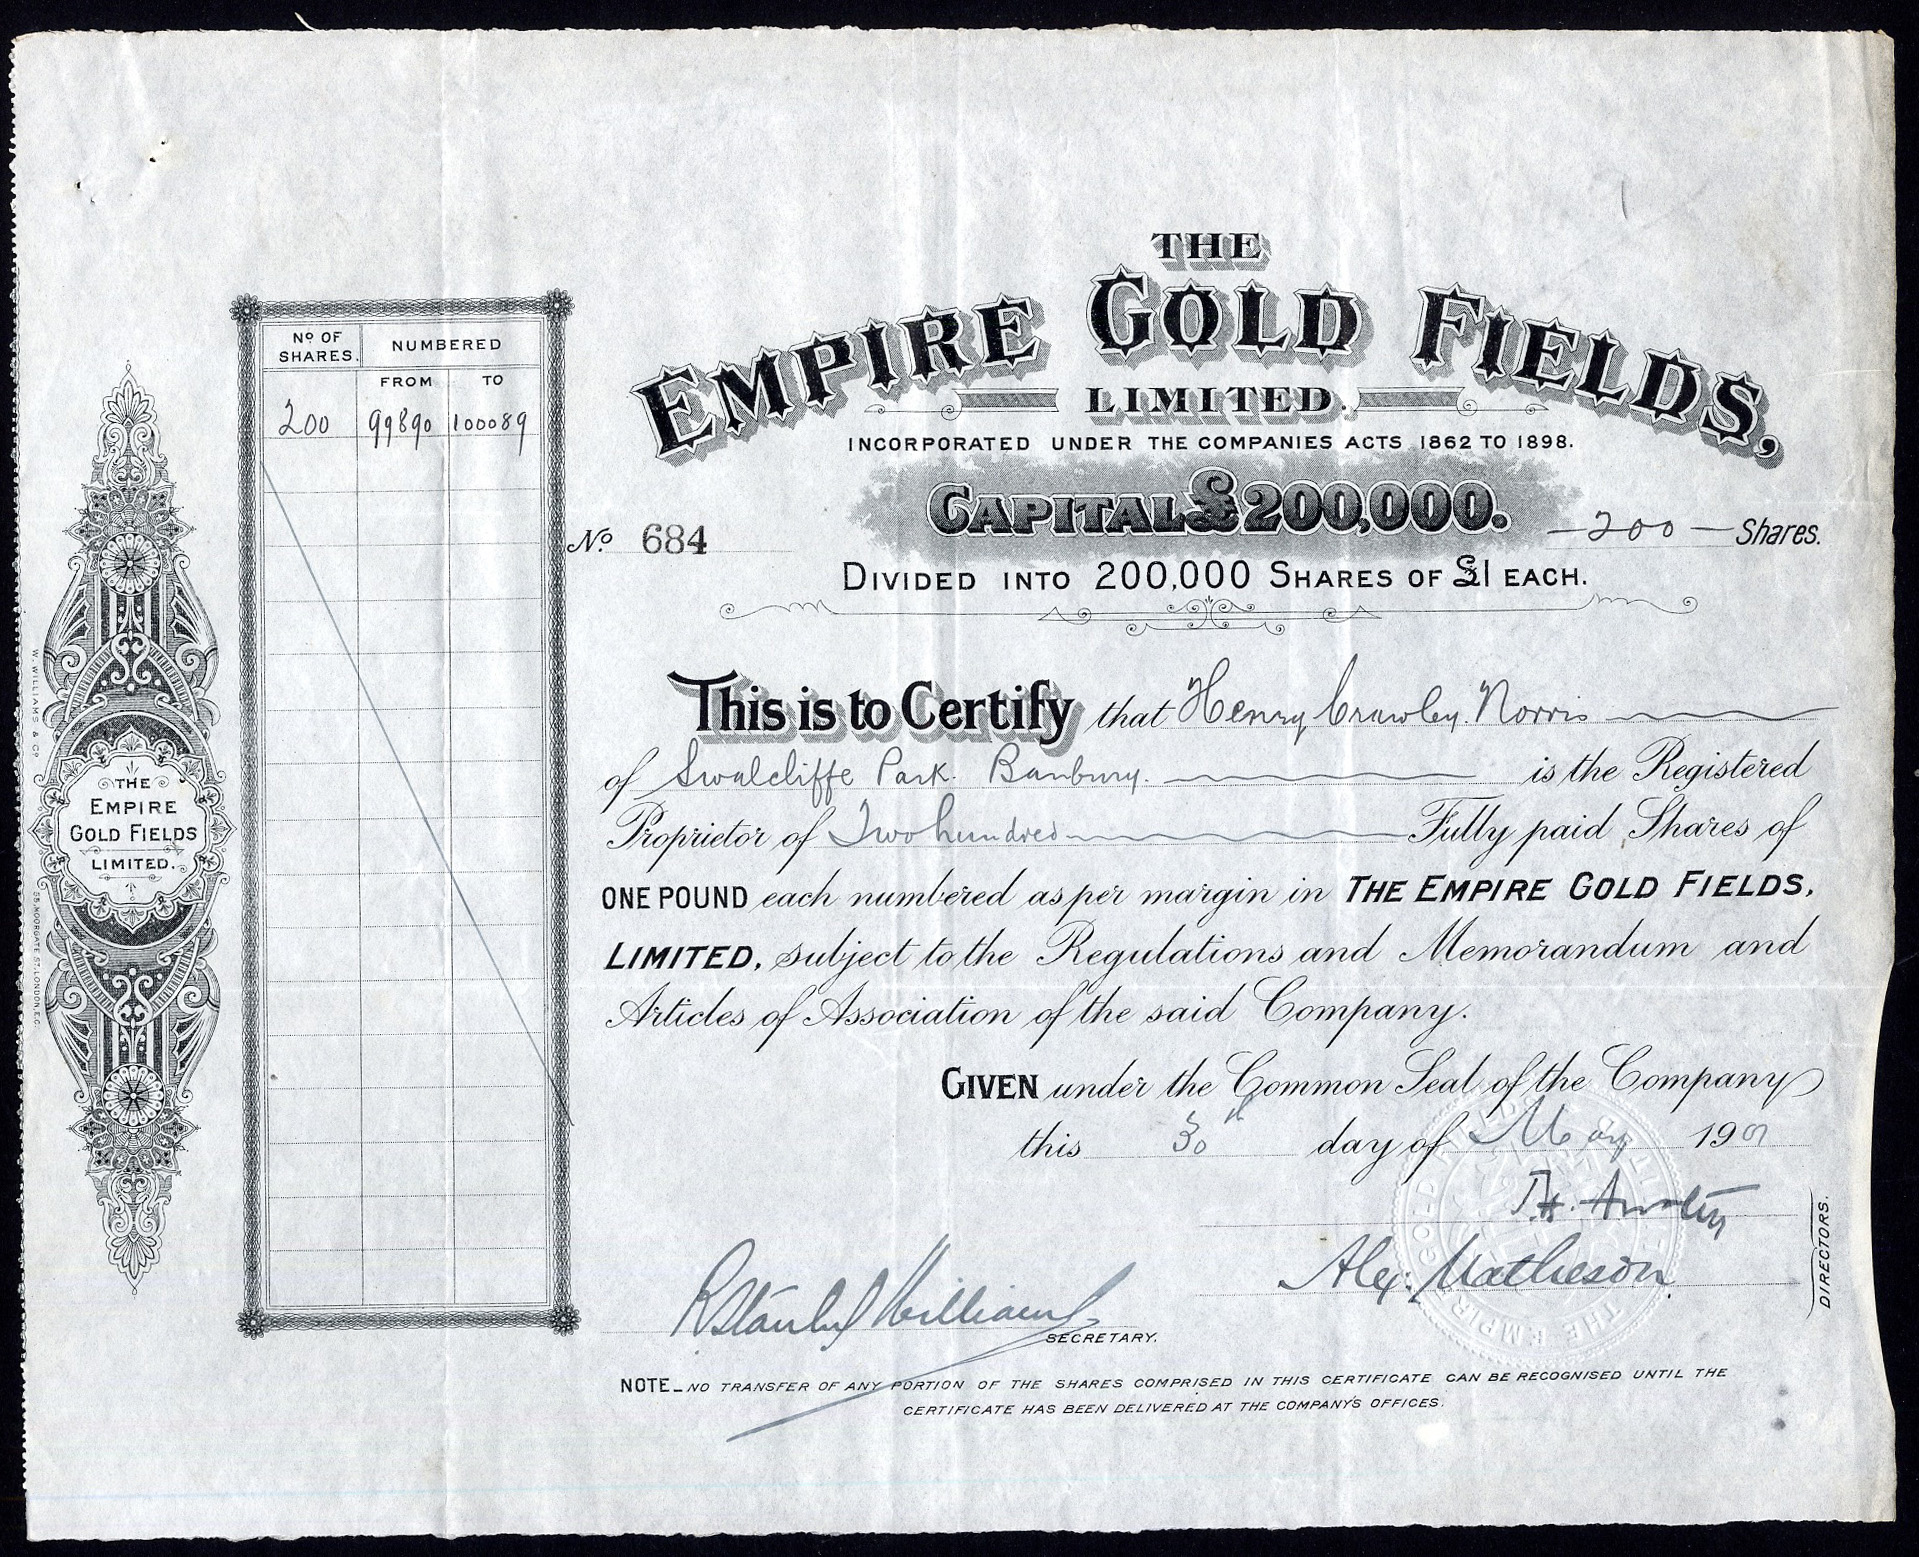 THE
EMPIRE GOLD FIELDS,
LIMITED.
INCORPORATED UNDER THE COMPANIES ACTS 1862 TO 1898.
CAPITAL £200,000.
No. 684
— 200 — Shares.
DIVIDED INTO 200,000 SHARES OF £1 EACH.
This is to Certify that Henry Crawley Norris
of Swalcliffe Park. Banbury. is the Registered
Proprietor of Two hundred Fully paid Shares of
ONE POUND each numbered as per margin in THE EMPIRE GOLD FIELDS,
LIMITED, subject to the Regulations and Memorandum and
Articles of Association of the said Company.
GIVEN under the Common Seal of the Company
this 30th day of May 190
Alex. Matheson
DIRECTORS.
R Stanley Williams
SECRETARY.
NOTE_NO TRANSFER OF ANY PORTION OF THE SHARES COMPRISED IN THIS CERTIFICATE CAN BE RECOGNISED UNTIL THE
CERTIFICATE HAS BEEN DELIVERED AT THE COMPANY'S OFFICES.
No OF SHARES. NUMBERED
FROM TO
200 99890 100089
THE
EMPIRE
GOLD FIELDS
LIMITED.
W. WILLIAMS & Co. 55, MOORGATE ST. LONDON, E.C.
THE EMPIRE GOLD